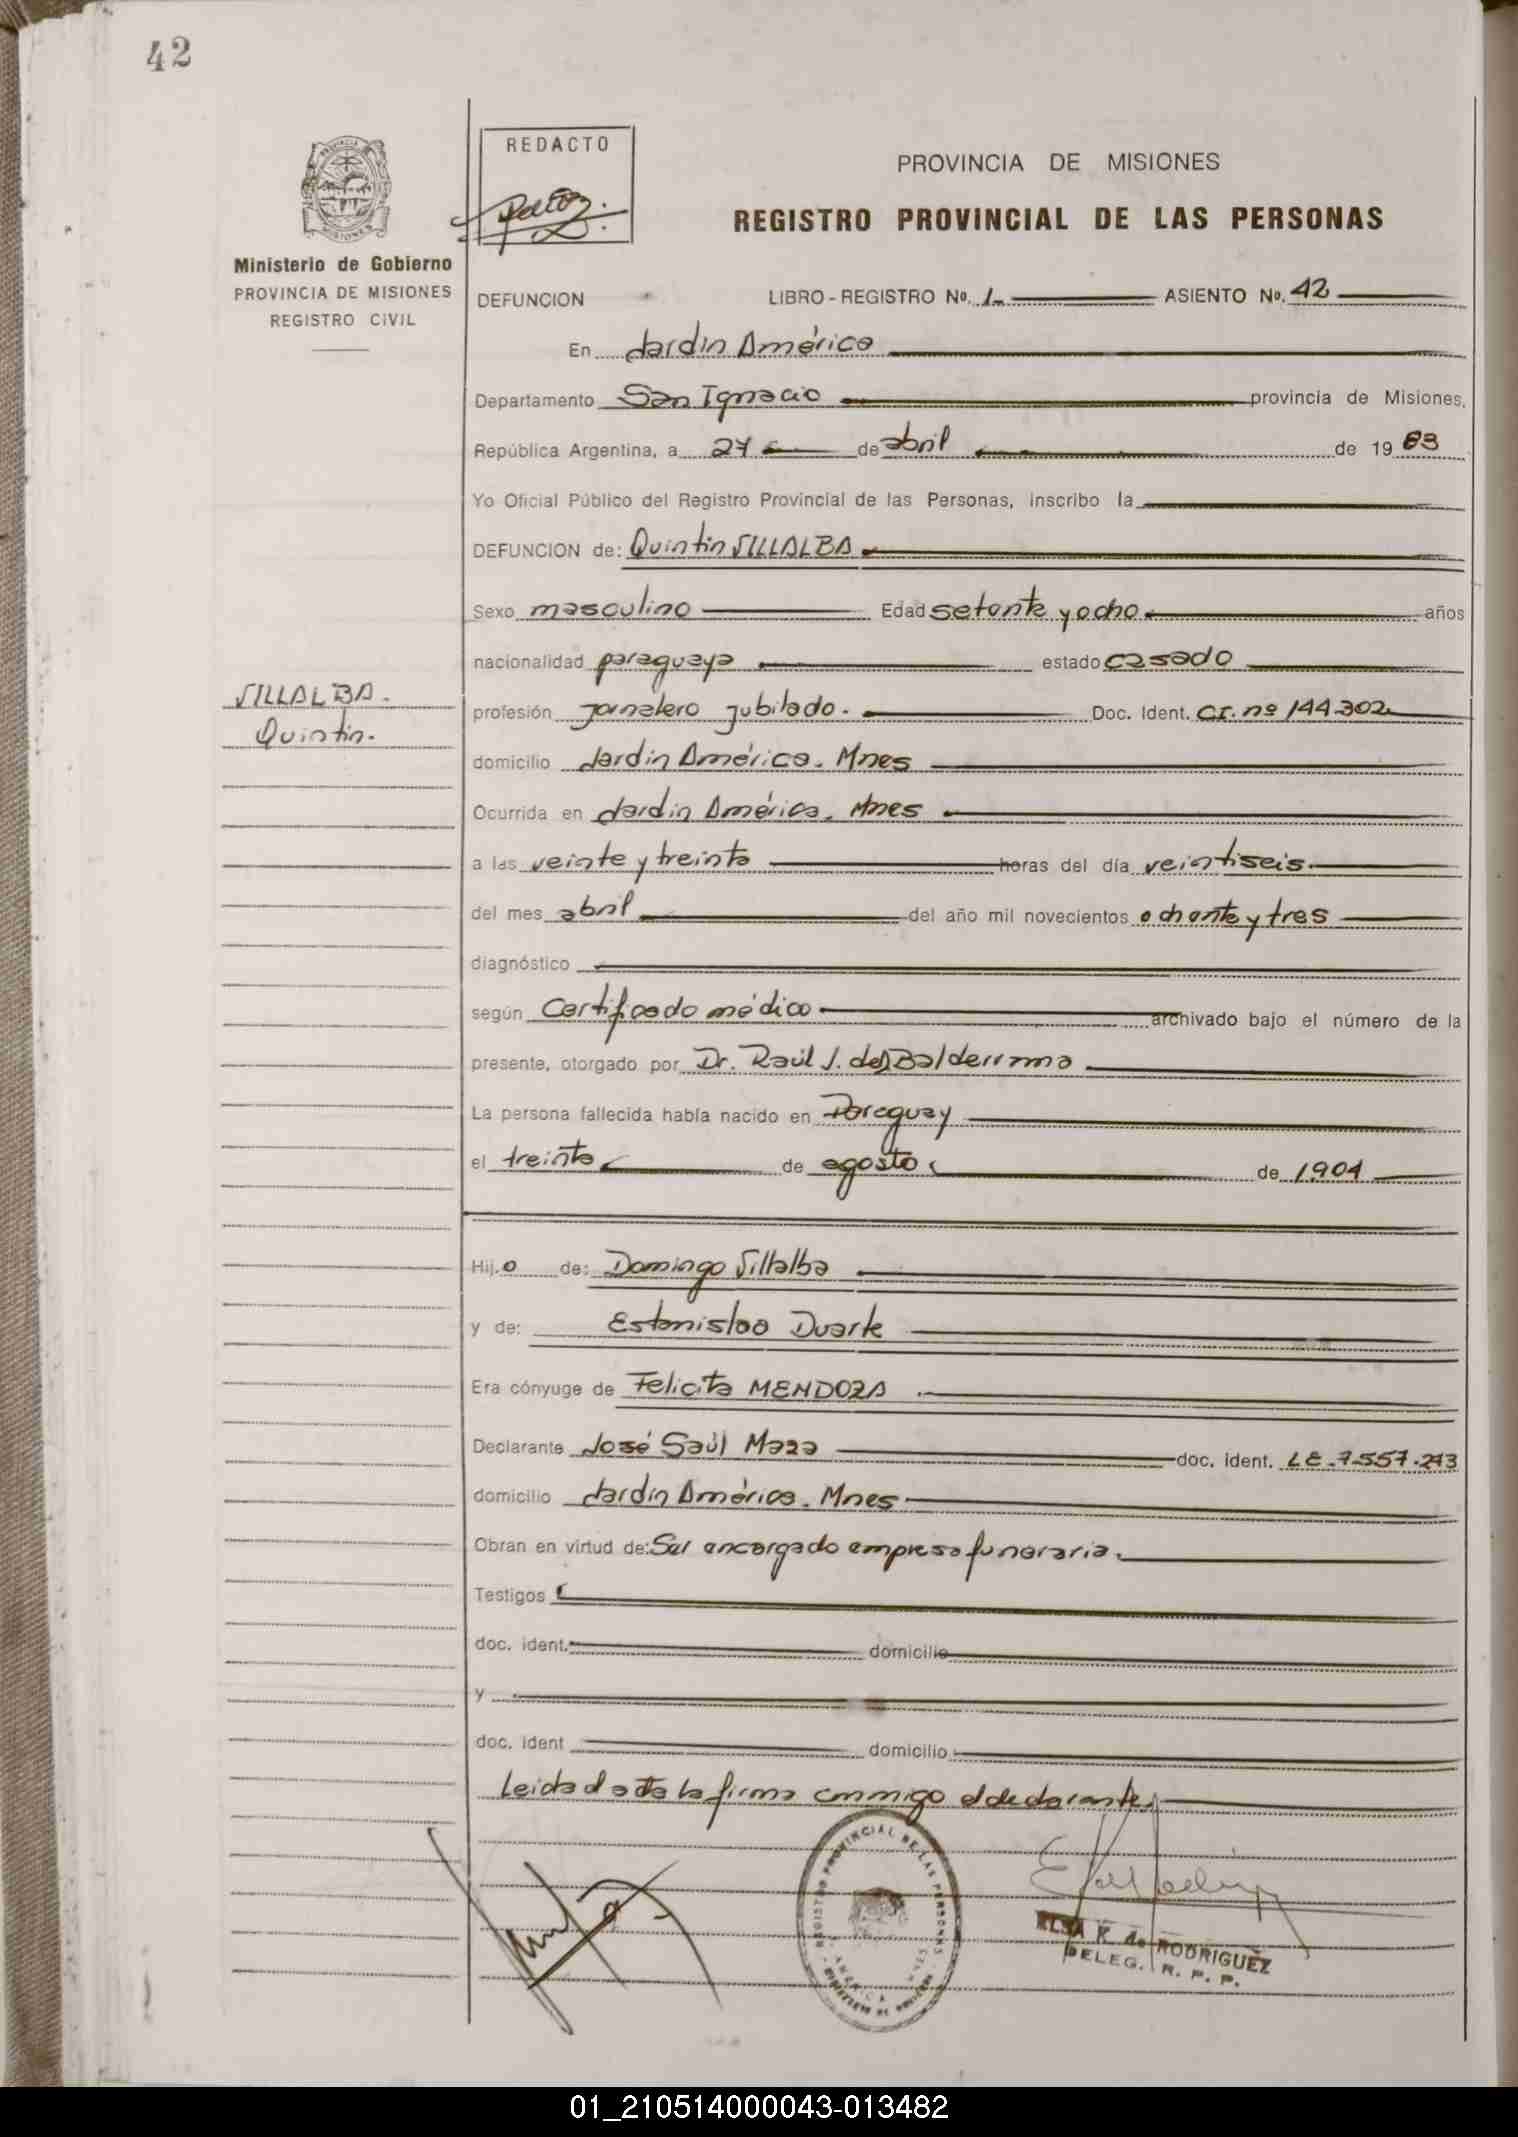 42
REDACTO
PROVINCIA DE MISIONES
REGISTRO PROVINCIAL DE LAS PERSONAS
Ministerio de Gobierno
PROVINCIA DE MISIONES
REGISTRO CIVIL
DEFUNCION LIBRO - REGISTRO No. 1 ASIENTO No. 42
En Jardin América
Departamento San Ignacio provincia de Misiones,
República Argentina, a 27 de abril de 19 83
Yo Oficial Público del Registro Provincial de las Personas, inscribo la
DEFUNCION de: Quintin VILLALBA
Sexo masculino Edad setenta y ocho años
nacionalidad paraguaya estado casado
VILLALBA.
Quintin.
profesión jornalero jubilado. Doc. Ident. CI. nº 144.302
domicilio Jardin América. Mnes
Ocurrida en Jardin América. Mnes
a las veinte y treinta horas del día veintiseis
del mes abril del año mil novecientos ochenta y tres
diagnóstico
según Certificado médico archivado bajo el número de la
presente, otorgado por Dr. Raúl J. Balderrama
La persona fallecida había nacido en Paraguay
el treinta de agosto de 1.904
Hijo de: Domingo Villalba
y de: Estanislaa Duarte
Era cónyuge de Felicita MENDOZA
Declarante José Saúl Maza doc. ident. LE.7.557.243
domicilio Jardin América. Mnes
Obran en virtud de: Ser encargado empresa funeraria.
Testigos
doc. ident. domicilio
y
doc. ident domicilio
Leida la firma conmigo el declarante.
REGISTRO PROVINCIAL DE LAS PERSONAS
ELSA K. de RODRIGUEZ
DELEG. R. P. P.
01_210514000043-013482